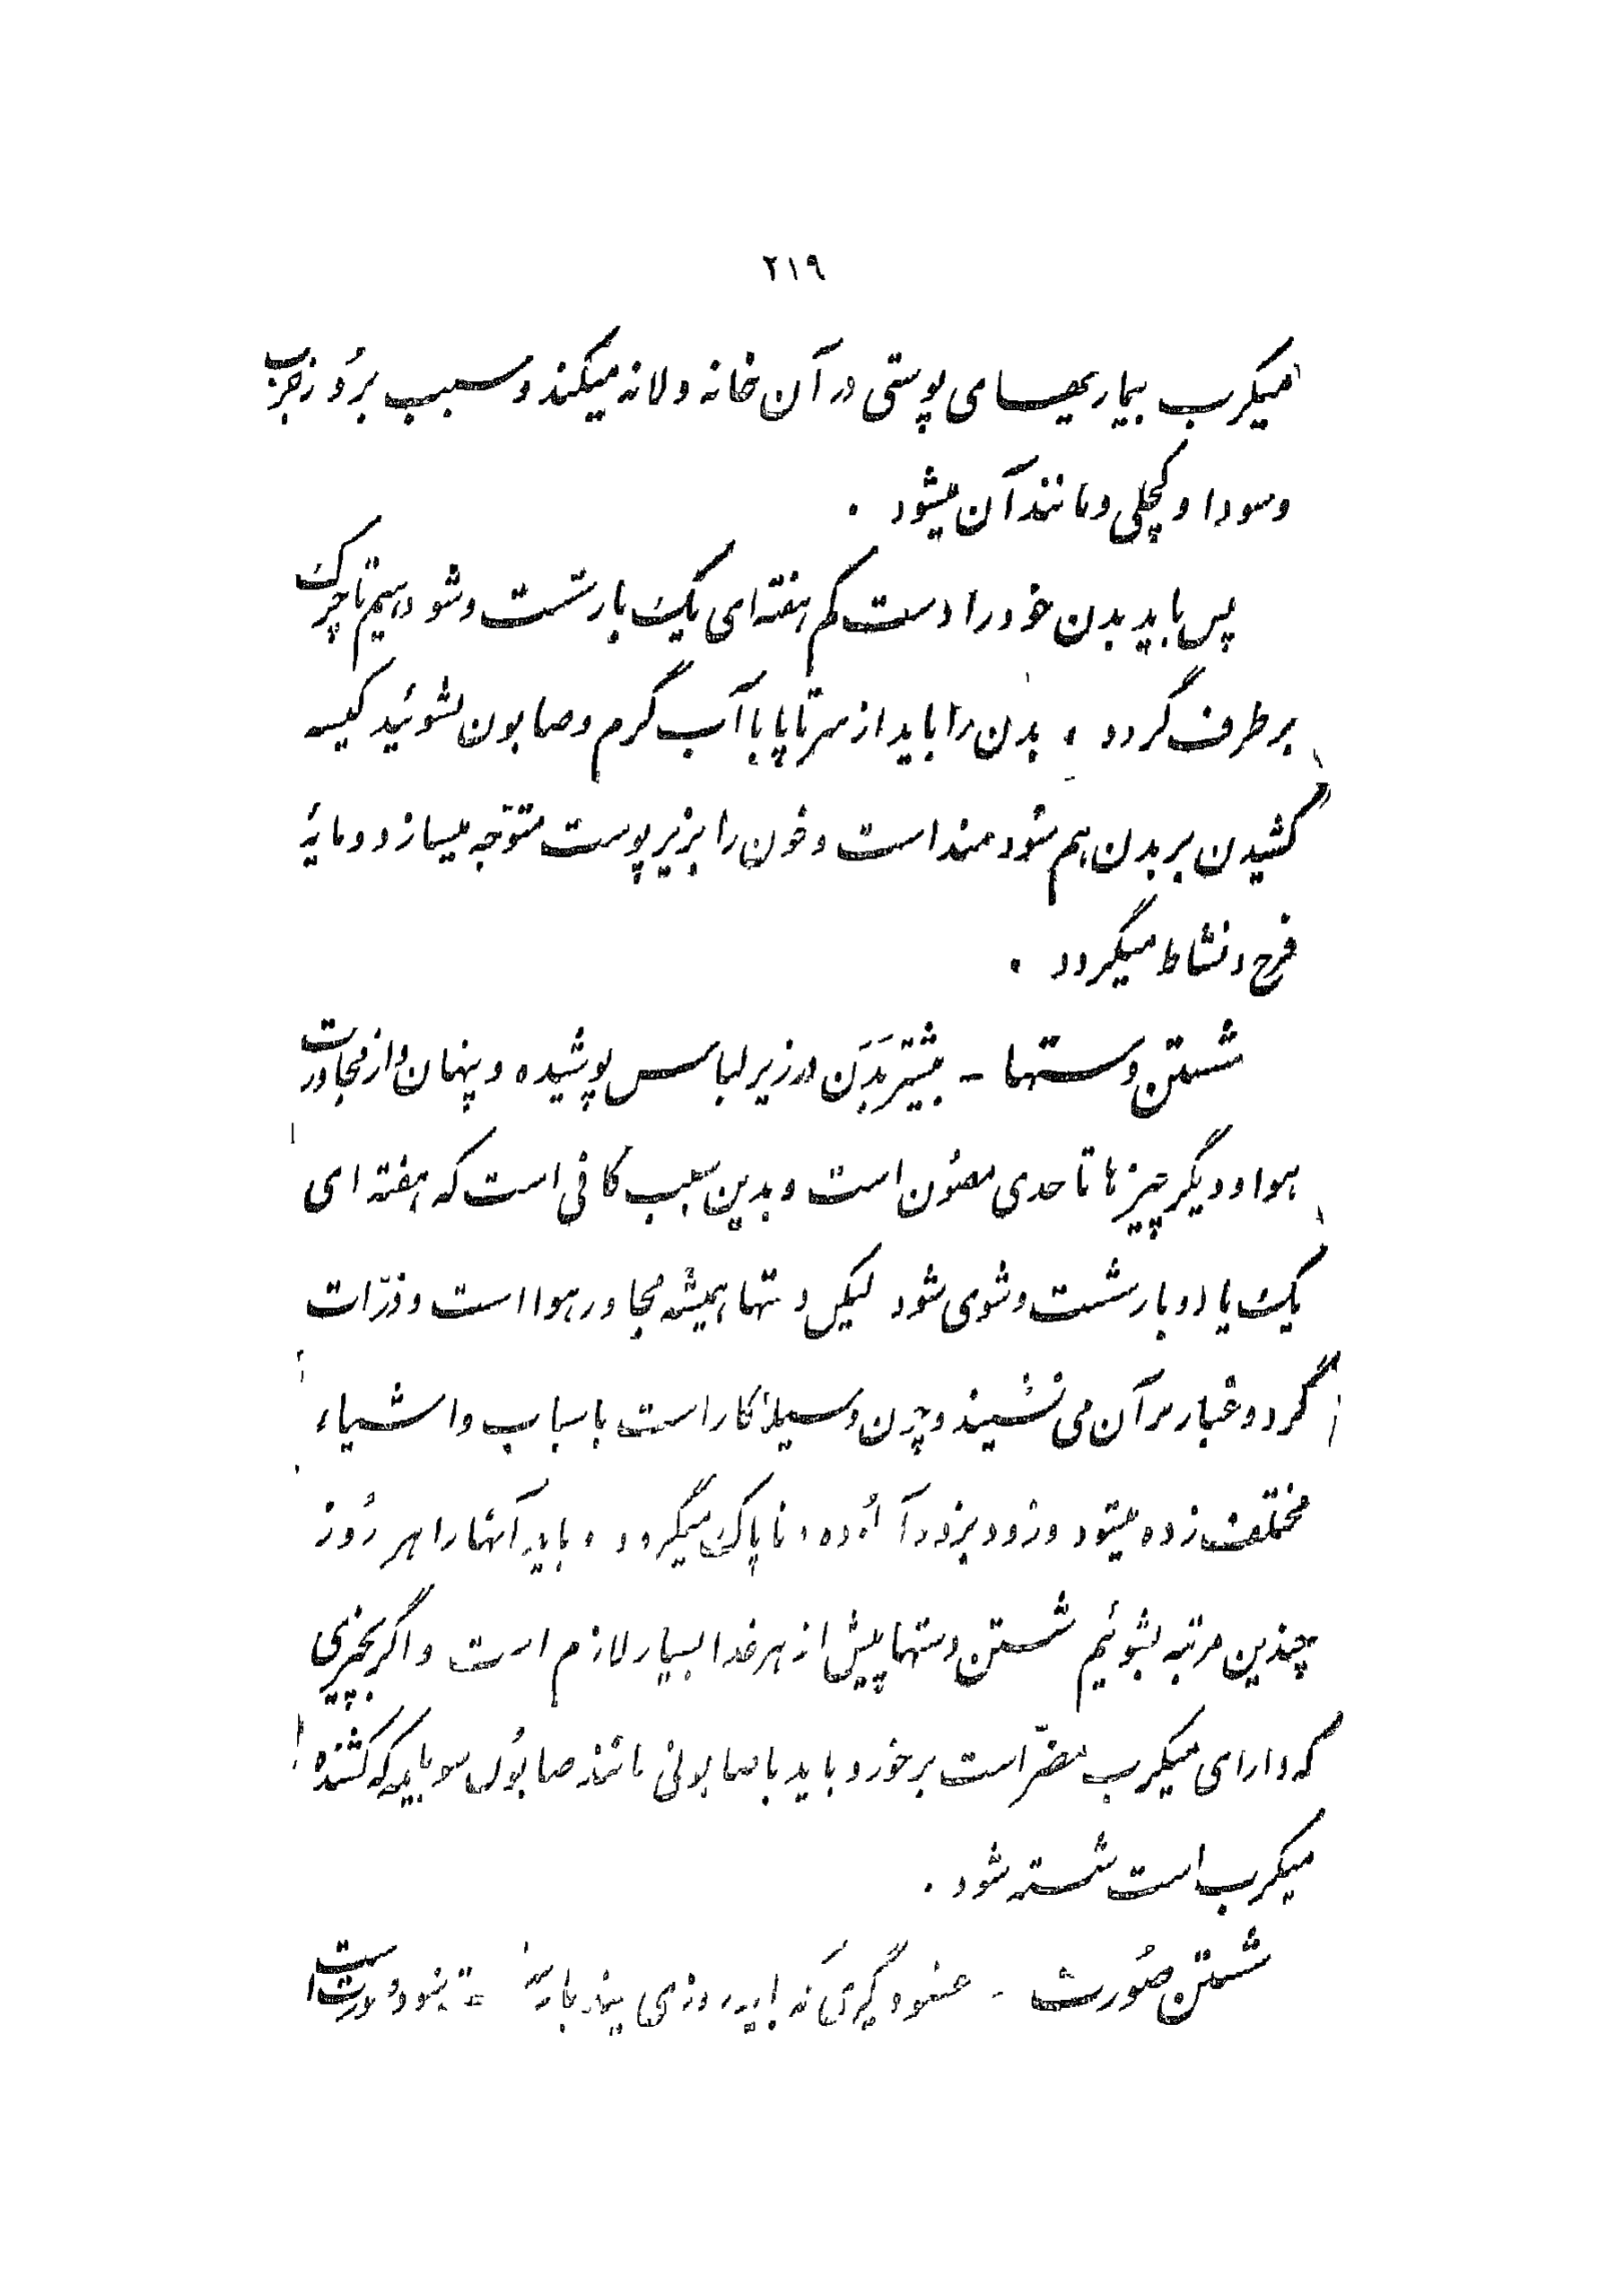 ۲۱۹
میکرب بیماریهای پوستی در آن خانه و لانه میکند و سبب بُروز جرب
و سودا و کچلی و مانند آن میشود .
پس باید بدن خود را دست کم هفته‌ای یک بار شست و شو دهیم تا چرک
برطرف گردد ، بدن را باید از سر تا پا با آب گرم و صابون بشوئید کیسه
کشیدن بر بدن هم سودمند است و خون را بزیر پوست متوّجه میسازد و مایهٔ
فرح و نشاط میگردد .
شستن دستها - بیشتر بَدَن در زیر لباس پوشیده و پنهان و از مجاورت
هوا و دیگر چیزها تا حدی مصُون است و بدین سبب کافی است که هفته ای
یک یا دو بار شست و شوی شود لیکن دستها همیشه مجاور هوا است و ذرّات
گرد و غبار بر آن می نشیند و چون وسیلهٔ کار است با سباب و اشیاء
مختلف زده میشود و زود بزود آلوده و ناپاک میگردد ، باید آنها را هر رُوز
چندین مرتبه بشوئیم شستن دستها پیش از هر غذا بسیار لازم است و اگر بچیزی
که دارای میکرب مضرّ است برخورد باید با صابونی مانند صابُون سوبلیمه که کشنده
میکرب است شسته شود .
شستن صُورت - عضو دیگری که باید روزی چند بار شسته شود صورت است